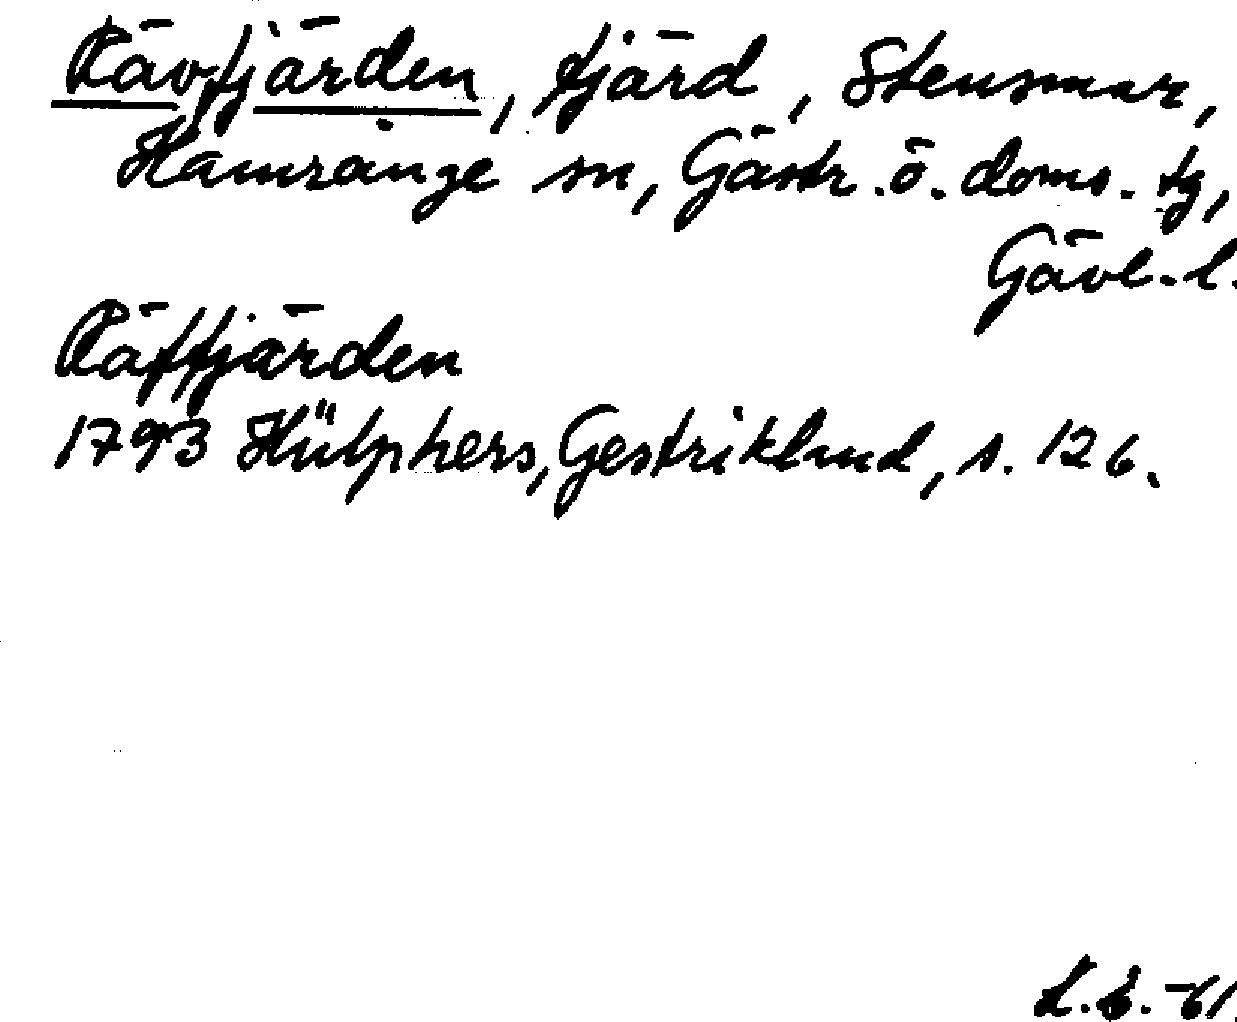 Rävfjärden, fjärd, Stensmar,
Hamrånge sn, Gästr. ö. doms. tg,
Gävl. l.
Räffjärden
1793 Hülphers, Gestrikland, s. 126.
-61.